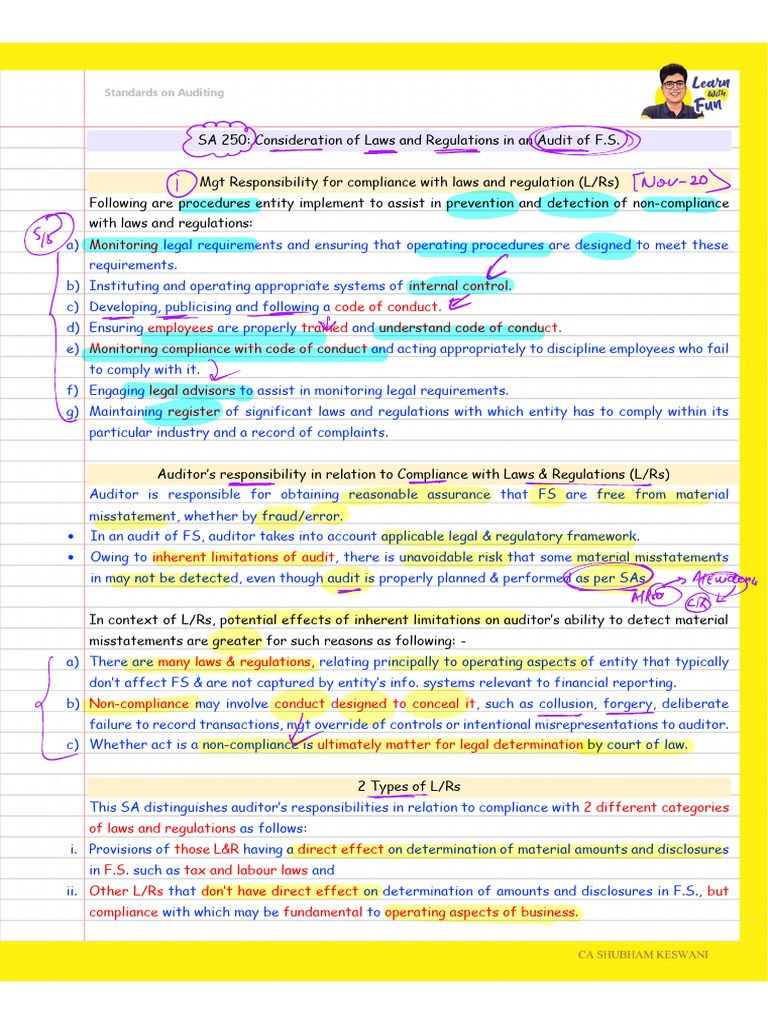 Standards on Auditing
Learn
With
Fun
SA 250: Consideration of Laws and Regulations in an Audit of F.S.
1 Mgt Responsibility for compliance with laws and regulation (L/Rs) [Nov-20]
Following are procedures entity implement to assist in prevention and detection of non-compliance
with laws and regulations:
5/8
a) Monitoring legal requirements and ensuring that operating procedures are designed to meet these
requirements.
b) Instituting and operating appropriate systems of internal control.
c) Developing, publicising and following a code of conduct.
d) Ensuring employees are properly trained and understand code of conduct.
e) Monitoring compliance with code of conduct and acting appropriately to discipline employees who fail
to comply with it.
f) Engaging legal advisors to assist in monitoring legal requirements.
g) Maintaining register of significant laws and regulations with which entity has to comply within its
particular industry and a record of complaints.
Auditor's responsibility in relation to Compliance with Laws & Regulations (L/Rs)
Auditor is responsible for obtaining reasonable assurance that FS are free from material
misstatement, whether by fraud/error.
• In an audit of FS, auditor takes into account applicable legal & regulatory framework.
• Owing to inherent limitations of audit, there is unavoidable risk that some material misstatements
in may not be detected, even though audit is properly planned & performed as per SAs
In context of L/Rs, potential effects of inherent limitations on auditor's ability to detect material
misstatements are greater for such reasons as following: -
a) There are many laws & regulations, relating principally to operating aspects of entity that typically
don't affect FS & are not captured by entity's info. systems relevant to financial reporting.
b) Non-compliance may involve conduct designed to conceal it, such as collusion, forgery, deliberate
failure to record transactions, mgt override of controls or intentional misrepresentations to auditor.
c) Whether act is a non-compliance is ultimately matter for legal determination by court of law.
2 Types of L/Rs
This SA distinguishes auditor's responsibilities in relation to compliance with 2 different categories
of laws and regulations as follows:
i. Provisions of those L&R having a direct effect on determination of material amounts and disclosures
in F.S. such as tax and labour laws and
ii. Other L/Rs that don't have direct effect on determination of amounts and disclosures in F.S., but
compliance with which may be fundamental to operating aspects of business.
CA SHUBHAM KESWANI